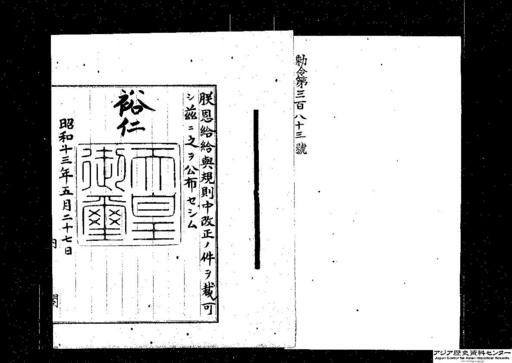 勅令第三百八十三號
朕恩給給與規則中改正ノ件ヲ裁可
シ茲ニ之ヲ公布セシム
裕仁
天皇
御璽
昭和十三年五月二十七日
内閣
アジア歴史資料センター
Japan Center for Asian Historical Records